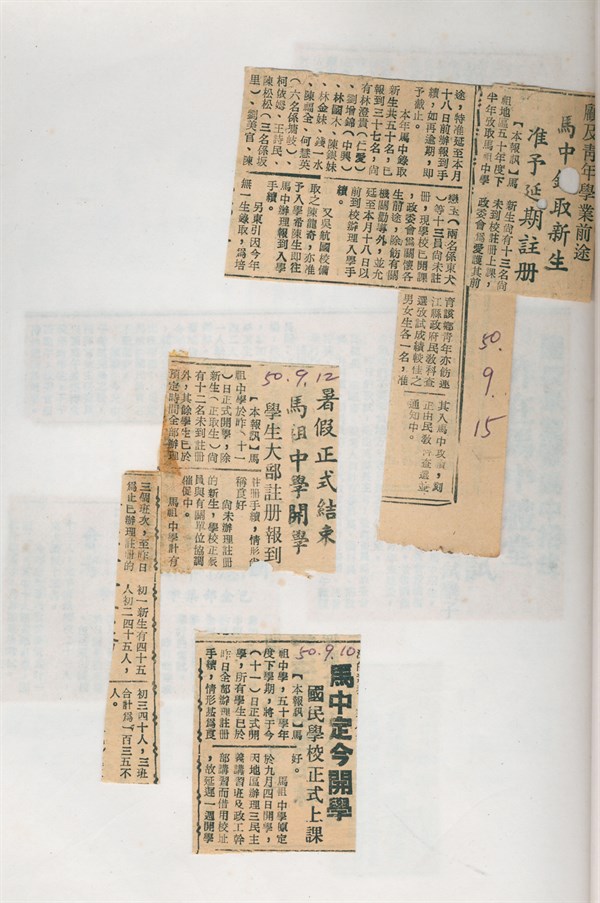 顧及青年學業前途
馬中錄取新生
准予延期註册
【本報訊】馬
祖地區五十年度下
半年放取馬祖中學
新生尚有十三名尚
未到校註册上課,
政委會為愛護其前
途,特准延至本月
十八日前辦報到手
續,如再逾期,即
予截止。
本年馬中錄取
新生共五十名,已
報到三十七名,尚
有林澄貴(仁愛)
、劉增錦(中興)
、林國水、陳銀妹
、林金妹、錢一水
、陳瑞金、何慧英
(六名係塘岐)、
柯依姆、王詩民、
陳松松(三名係坂
里)、劉美官、陳
玉(兩名係東犬
)等十三員尚未註
册,現學校已開課
,政委會為關懷各
生前途,除飭有關
機關勸導外,並允
延至本月十八日以
前到校辦理入學手
續。
又吳航國校備
取之陳龍奇,亦准
予入學希陳生即往
馬中辦理報到入學
手續。
另東引因今年
無一生錄取,為培
育該鄉青年亦飭連
江縣政府民教科查
選放試成績較佳之
男女生各一名,准
其入馬中攻讀,刻
正由民教科查選並
通知中。
50.
9.
15
50.9.12
暑假正式結束
馬祖中學開學
學生大部註册報到
【本報訊】馬
祖中學於昨(十一
)日正式開學,除
新生(正取生)尚
有十二名未到註册
外,其餘學生已於
預定時間全部辦理
註册手續,情形尚
稱良好。
尚未辦理註册
的新生,學校正派
員與有關單位協調
催促中。
馬祖中學計有
三個班次,至昨日
為止已辦理註册的
初一新生有四十五
人初二四十五人,
初三四十人,三班
合計為一百三五不
人。
50.9.10
馬中定今開學
國民學校正式上課
【本報訊】馬
祖中學,五十學年
度下學期,將于今
(十一)日正式開
學,所有學生已於
昨日全部辦理註册
手續,情形甚為良
好。
馬祖中學原定
於九月四日開學,
因地區辦理三民主
義講習班及政工幹
部講習而借用校址
,故延遲一週開學